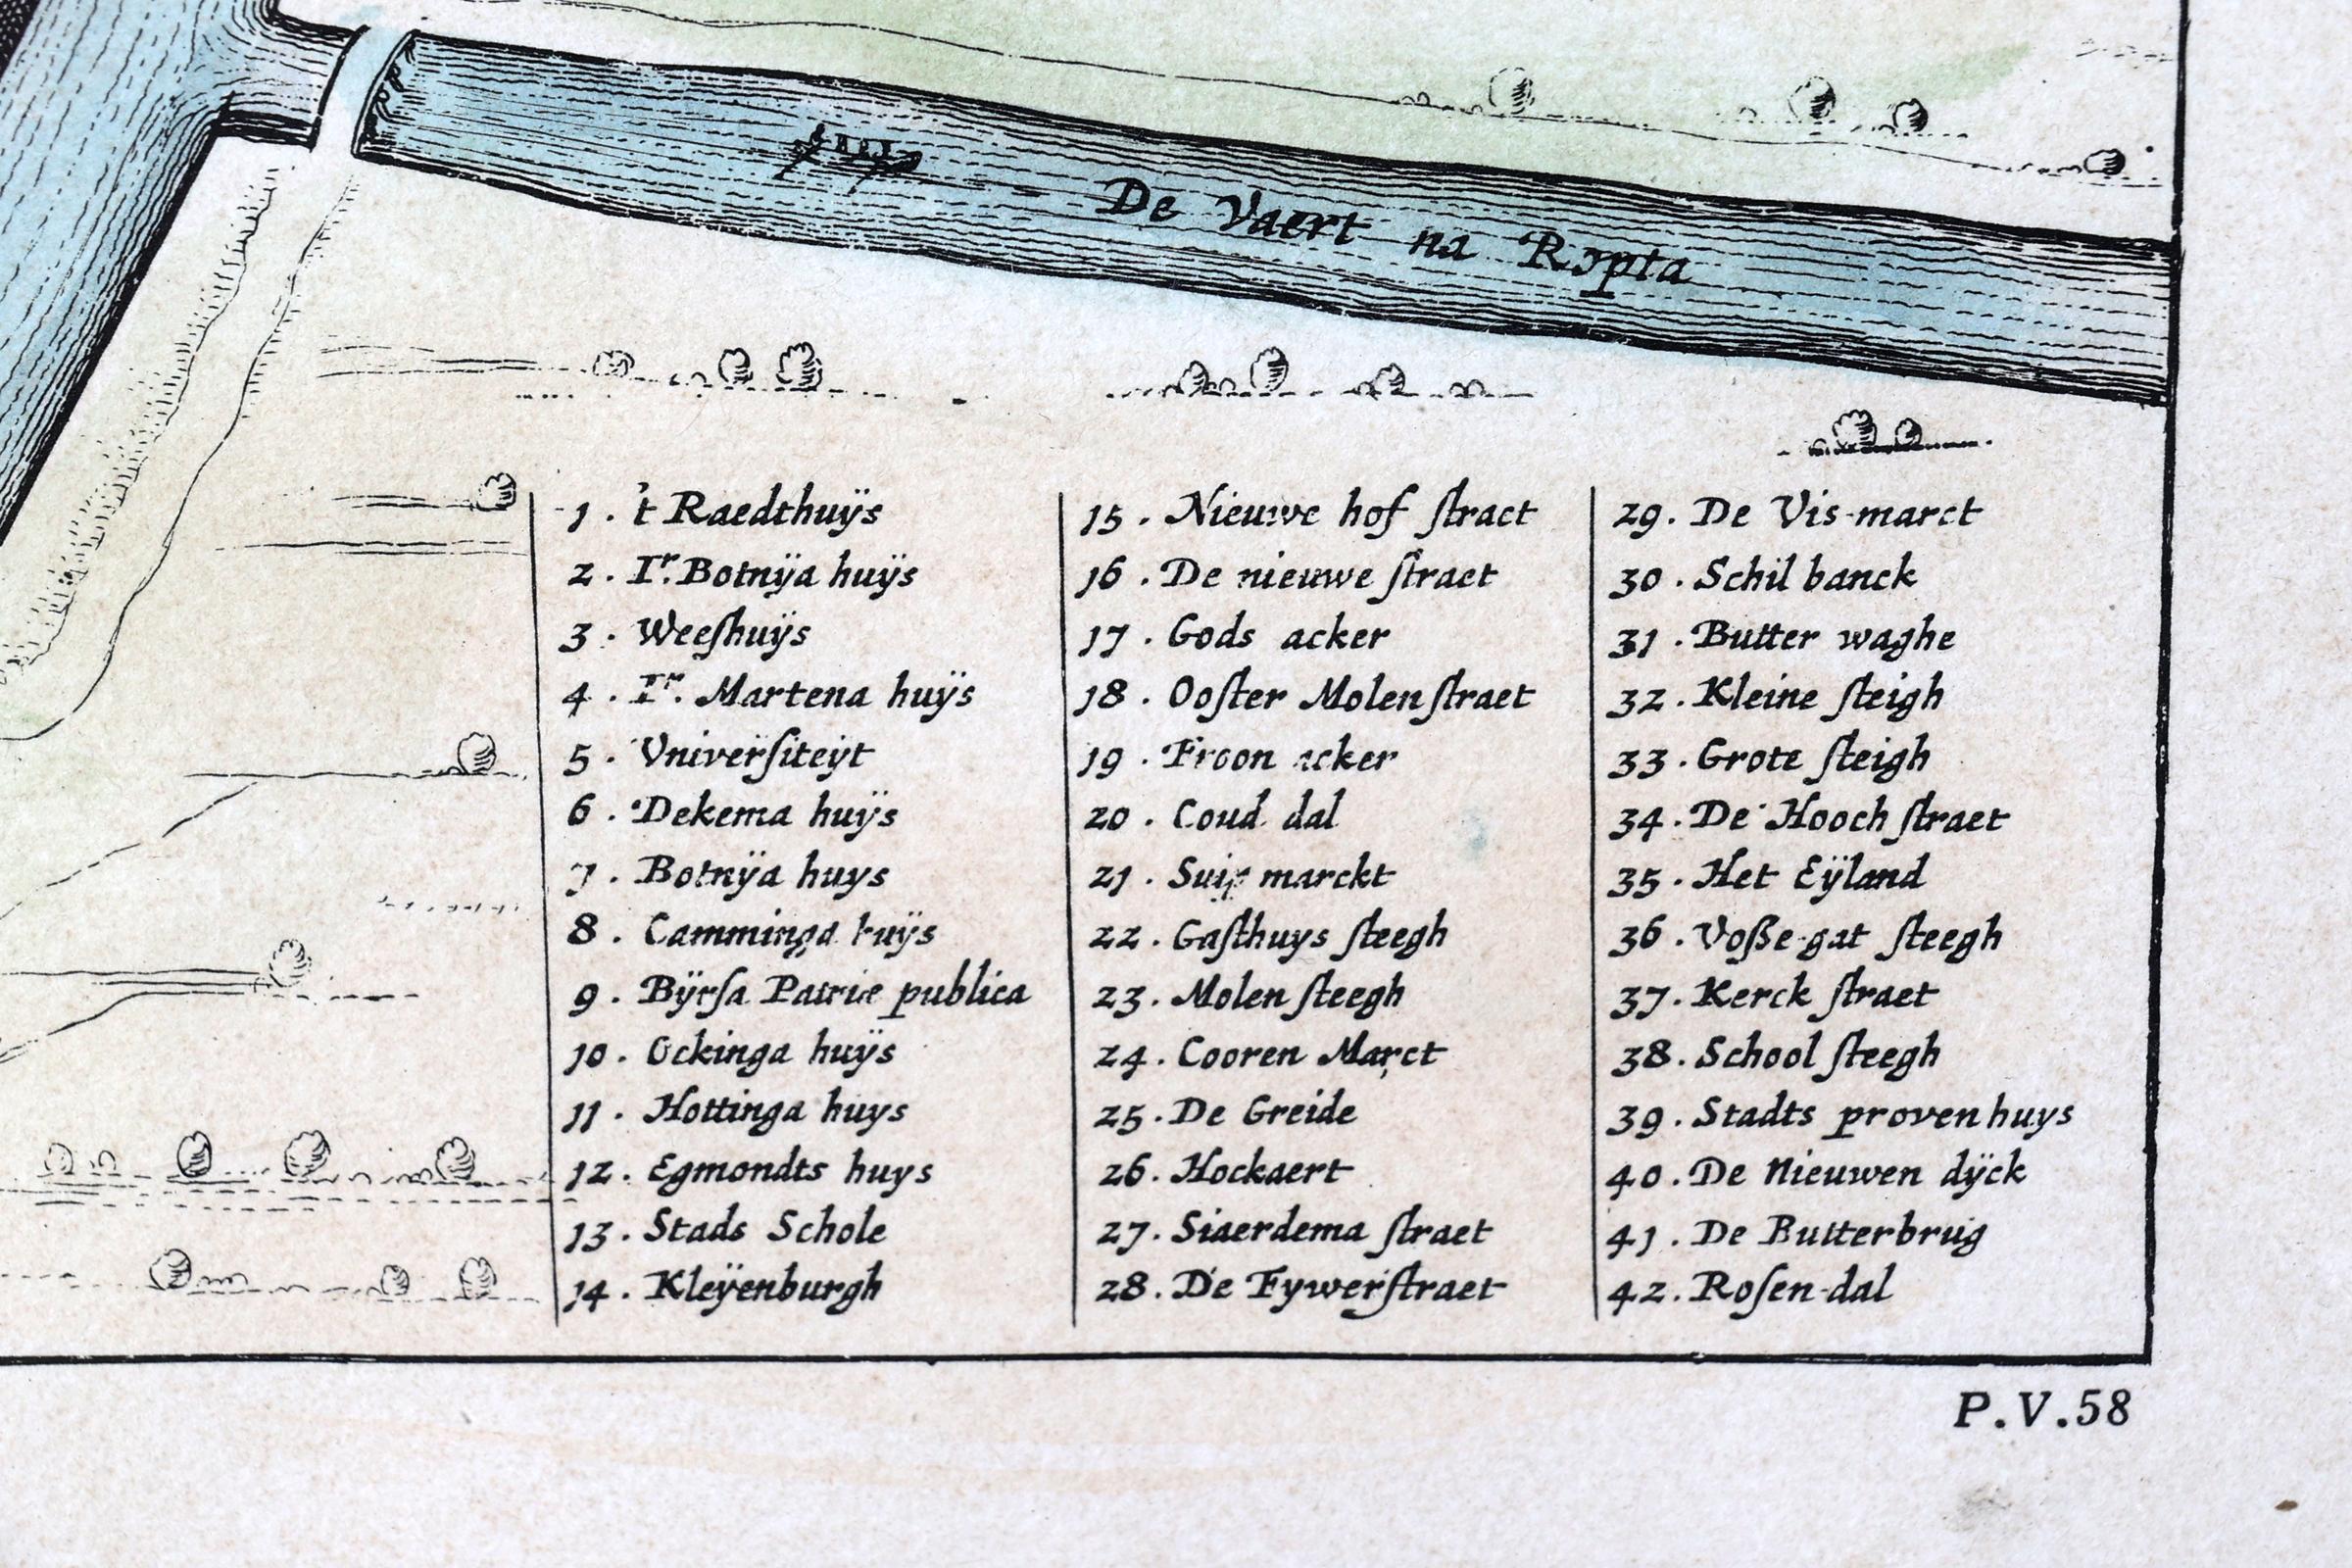 De Vaert na Ropta
1. 't Raedthuÿs
2. Ir. Botnÿa huÿs
3. Weeſhuÿs
4. Ir. Martena huÿs
5. Vniverſiteÿt
6. Dekema huÿs
7. Botnÿa huys
8. Camminga huÿs
9. Bÿrſa Patriæ publica
10. Ockinga huÿs
11. Hottinga huys
12. Egmondts huys
13. Stads Schole
14. Kleÿenburgh
15. Nieuwe hof ſtraet
16. De nieuwe ſtraet
17. Gods acker
18. Ooſter Molen ſtraet
19. Froon acker
20. Coud dal
21. marckt
22. Gaſthuys ſteegh
23. Molen ſteegh
24. Cooren Marct
25. De Greide
26. Hockaert
27. Siaerdema ſtraet
28. De Fywerſtraet
29. De Vis-marct
30. Schil banck
31. Butter waghe
32. Kleine ſteigh
33. Grote ſteigh
34. De Hooch ſtraet
35. Het Eÿland
36. Voße-gat ſteegh
37. Kerck ſtraet
38. School ſteegh
39. Stadts proven huys
40. De Nieuwen dÿck
41. De Butterbrug
42. Roſen-dal
P.V.58